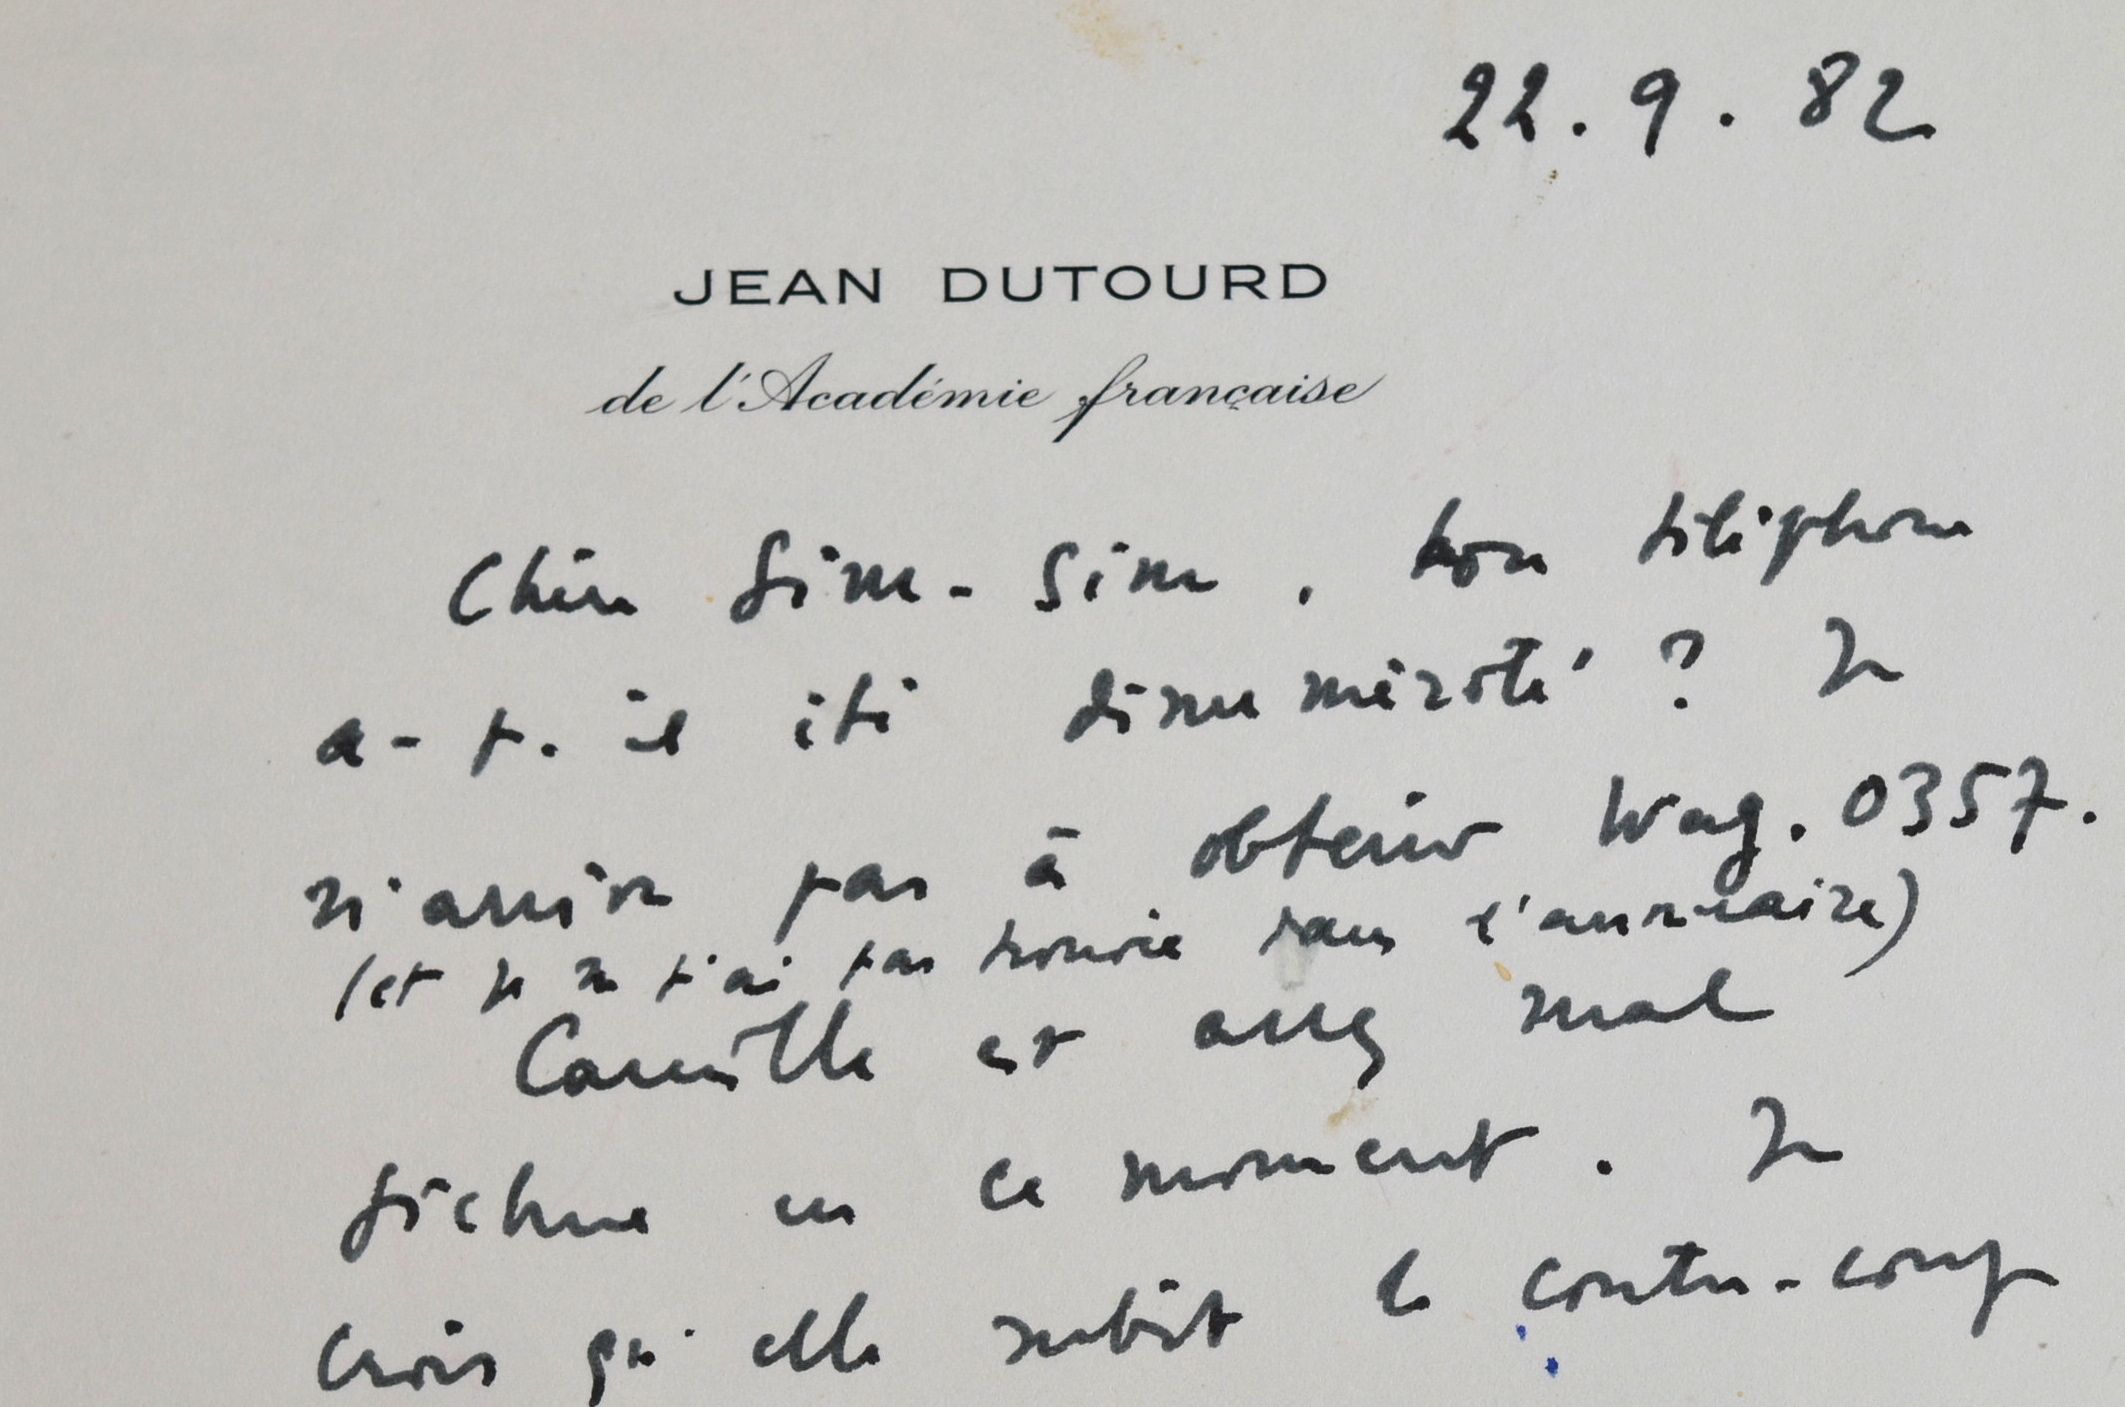 22.9.82
JEAN DUTOURD
de l'Académie française
Chère Sim-Sim, ton téléphone
a-t-il été dinumérioté ? Je
n'arrive pas à obtenir Wag. 0357.
(et je ne t'ai pas trouvée dans l'annuaire)
Camille est assez mal
fichue en ce moment. Je
crois qu'elle subit le contre-coup